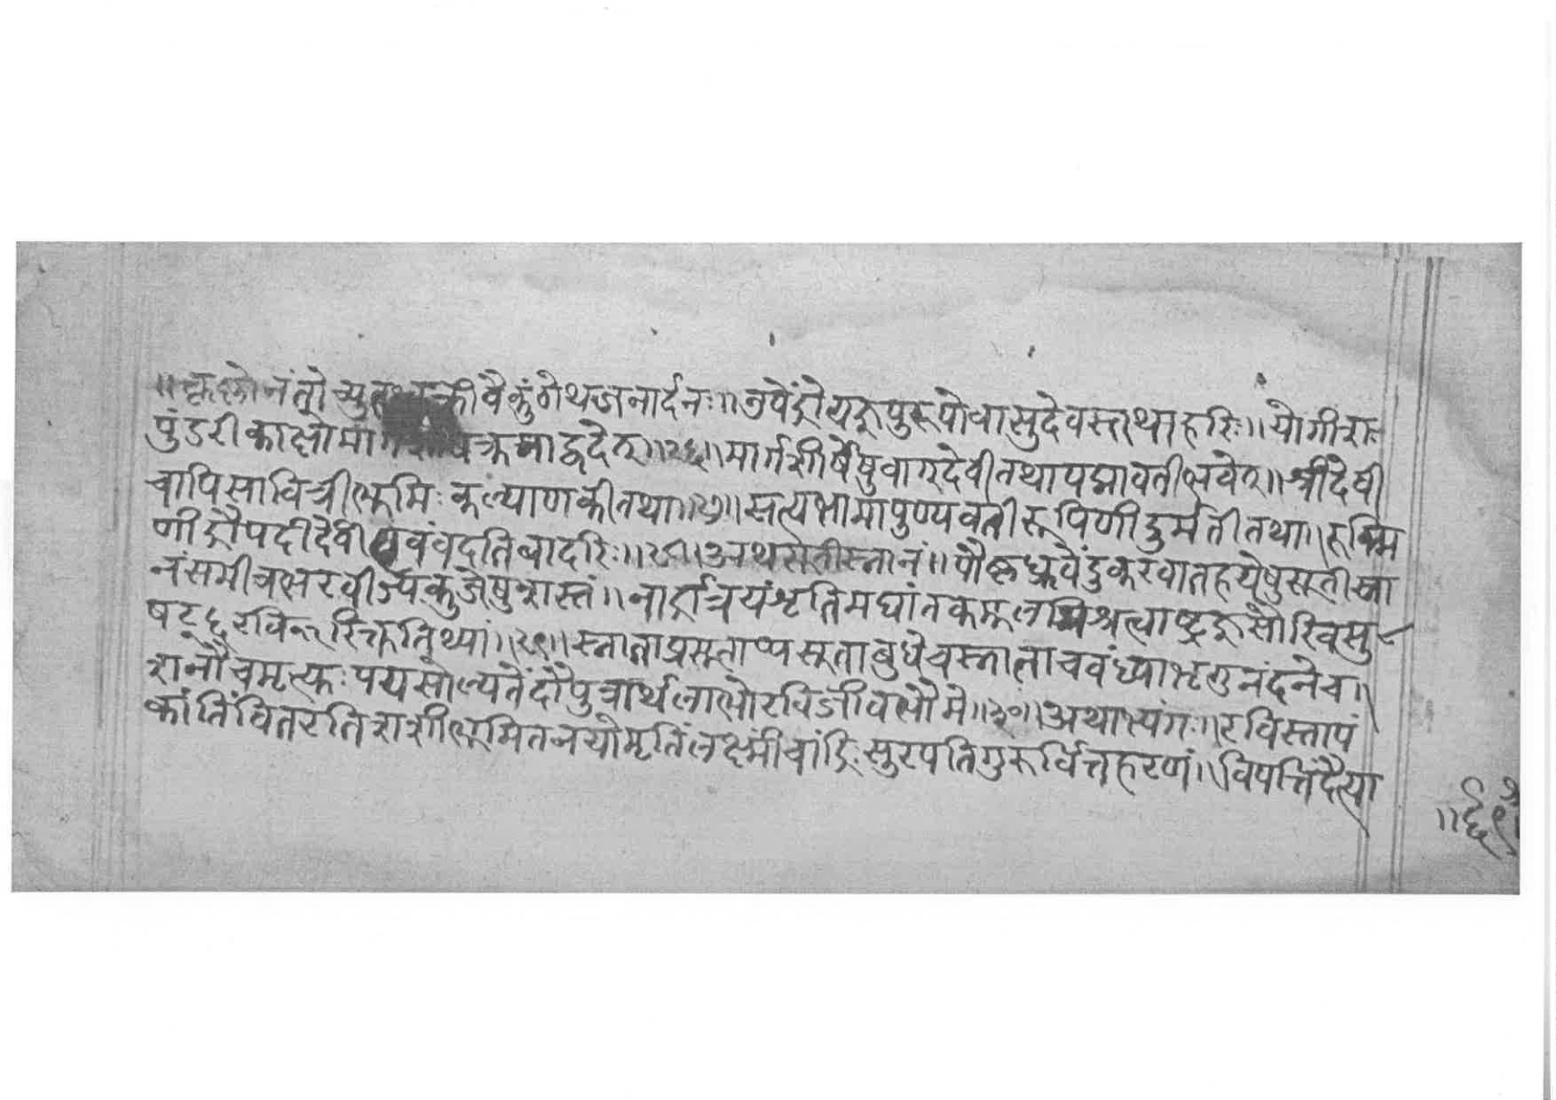 ॥कृष्णोनंतोच्युतश्चक्रीवैकुंठोथजनार्दनः॥उपेंद्रोयज्ञपुरुषोवासुदेवस्तथाहरिः॥योगीशः
पुंडरीकाक्षोमार्ग क्रमाद्वदेत्॥२६॥मार्गशीर्षेषुवाग्देवीतथापद्मावतीभवेत्॥श्रीदेवी
चापिसावित्रीभूमिःकल्याणकीतथा॥२७॥सत्यभामापुण्यवतीरूपिणीदुर्मतीतथा॥रुक्मि
णीद्रौपदीदेवीएवंवदतिबादरिः॥२८॥अथसूतीस्नानं॥पौष्णध्रुवेंदुकरवातहयेषुसूतीस्ना
नंसमीत्रभरवीज्यकुजेषुशस्तं॥नार्द्रात्रयंश्रुतिमघांतकमूलमिश्रत्वाष्ट्रज्ञसौरिवसु
षट्छरविरिक्ततिथ्यां॥२९॥स्नाताप्रसूताप्यसूताबुधेचस्नाताचवंध्याभृगुनंदनेच॥
शनौचमृत्युःपयसोल्पतेंदौपुत्रार्थलाभोरविजीवभौमे॥३०॥अथाभ्यंगः॥रविस्तापं
कांतिंवितरतिशशीभूमितनयोमृतिंलक्ष्मींचांद्रिःसुरपतिगुरुर्वित्तहरणं॥विपत्तिंदैत्या